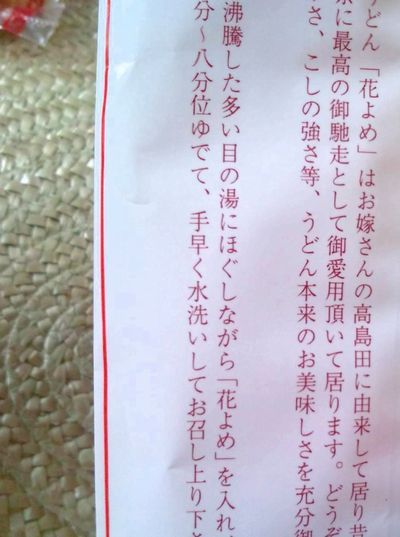 うどん「花よめ」はお嫁さんの高島田に由来して居り昔
に最高の御馳走として御愛用頂いて居ります。どうぞ
さ、こしの強さ等、うどん本来のお美味しさを充分御
沸騰した多い目の湯にほぐしながら「花よめ」を入れ
分〜八分位ゆでて、手早く水洗いしてお召し上り下さ